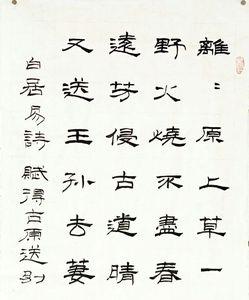 離〻原上草一
野火燒不盡春
遠芳侵古道晴
又送王孫去萋
白居易詩 賦得古原送別